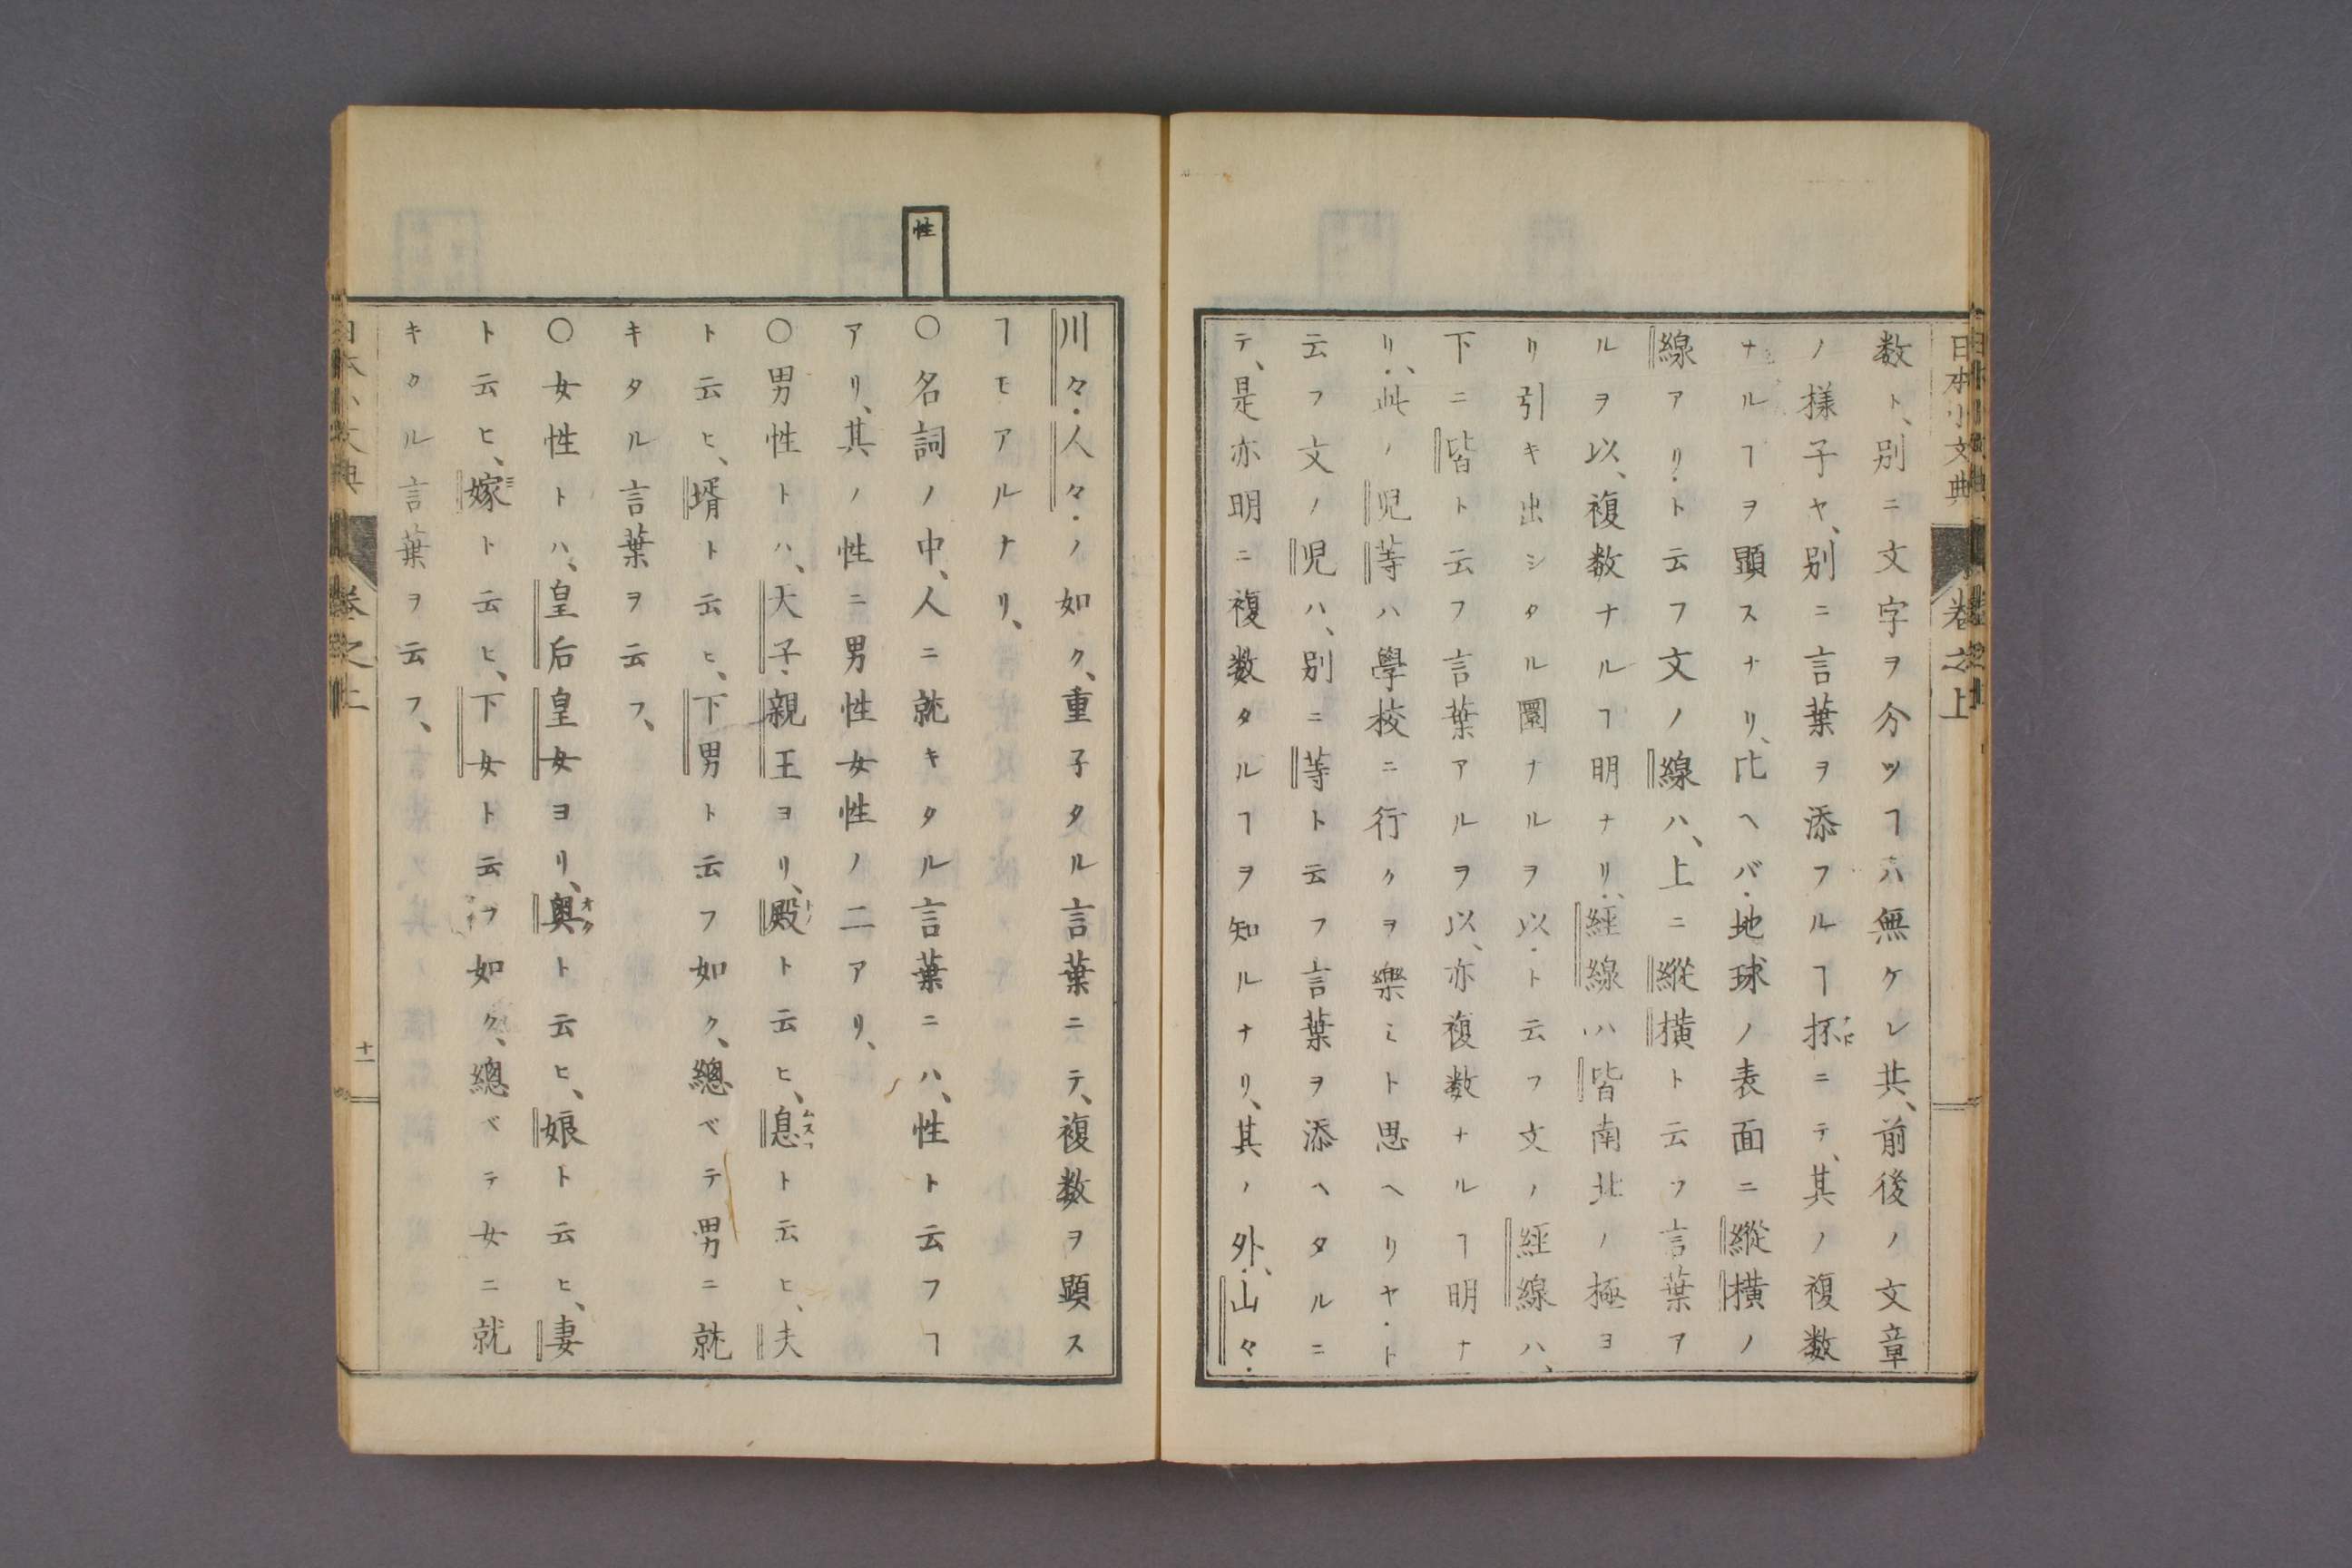 日本小文典 卷之上
数ト、別ニ文字ヲ分ツヿハ無ケレ共、前後ノ文章
ノ様子ヤ、別ニ言葉ヲ添フルヿ抔ニテ、其ノ複数
ナルヿヲ顕スナリ、比ヘバ・地球ノ表面ニ縱横ノ
線アリ・ト云フ文ノ線ハ、上ニ縱横ト云フ言葉ア
ルヲ以、複数ナルヿ明ナリ・、経線ハ皆南北ノ極ヨ
リ引キ出シタル圜ナルヲ以・ト云フ文ノ経線ハ、
下ニ皆ト云フ言葉アルヲ以、亦複数ナルヿ明ナ
リ・、此ノ児等ハ學校ニ行クヲ樂ミト思ヘリヤ・ト
云フ文ノ児ハ、別ニ等ト云フ言葉ヲ添ヘタルニ
テ、是亦明ニ複数タルヿヲ知ルナリ、其ノ外・、山々・
川々・人々・ノ如ク、重子タル言葉ニテ、複数ヲ顕ス
ヿモアルナリ、
性
〇名詞ノ中、人ニ就キタル言葉ニハ、性ト云フヿ
アリ、其ノ性ニ男性女性ノ二アリ、
〇男性トハ、天子・親王ヨリ、殿ト云ヒ、息ト云ヒ、夫
ト云ヒ、壻ト云ヒ、下男ト云フ如ク、總ベテ男ニ就
キタル言葉ヲ云フ、
〇女性トハ、皇后皇女ヨリ、奥ト云ヒ、娘ト云ヒ、妻
ト云ヒ、嫁ト云ヒ、下女ト云フ如ク、總ベテ女ニ就
キタル言葉ヲ云フ、
日本小文典 卷之上 十一